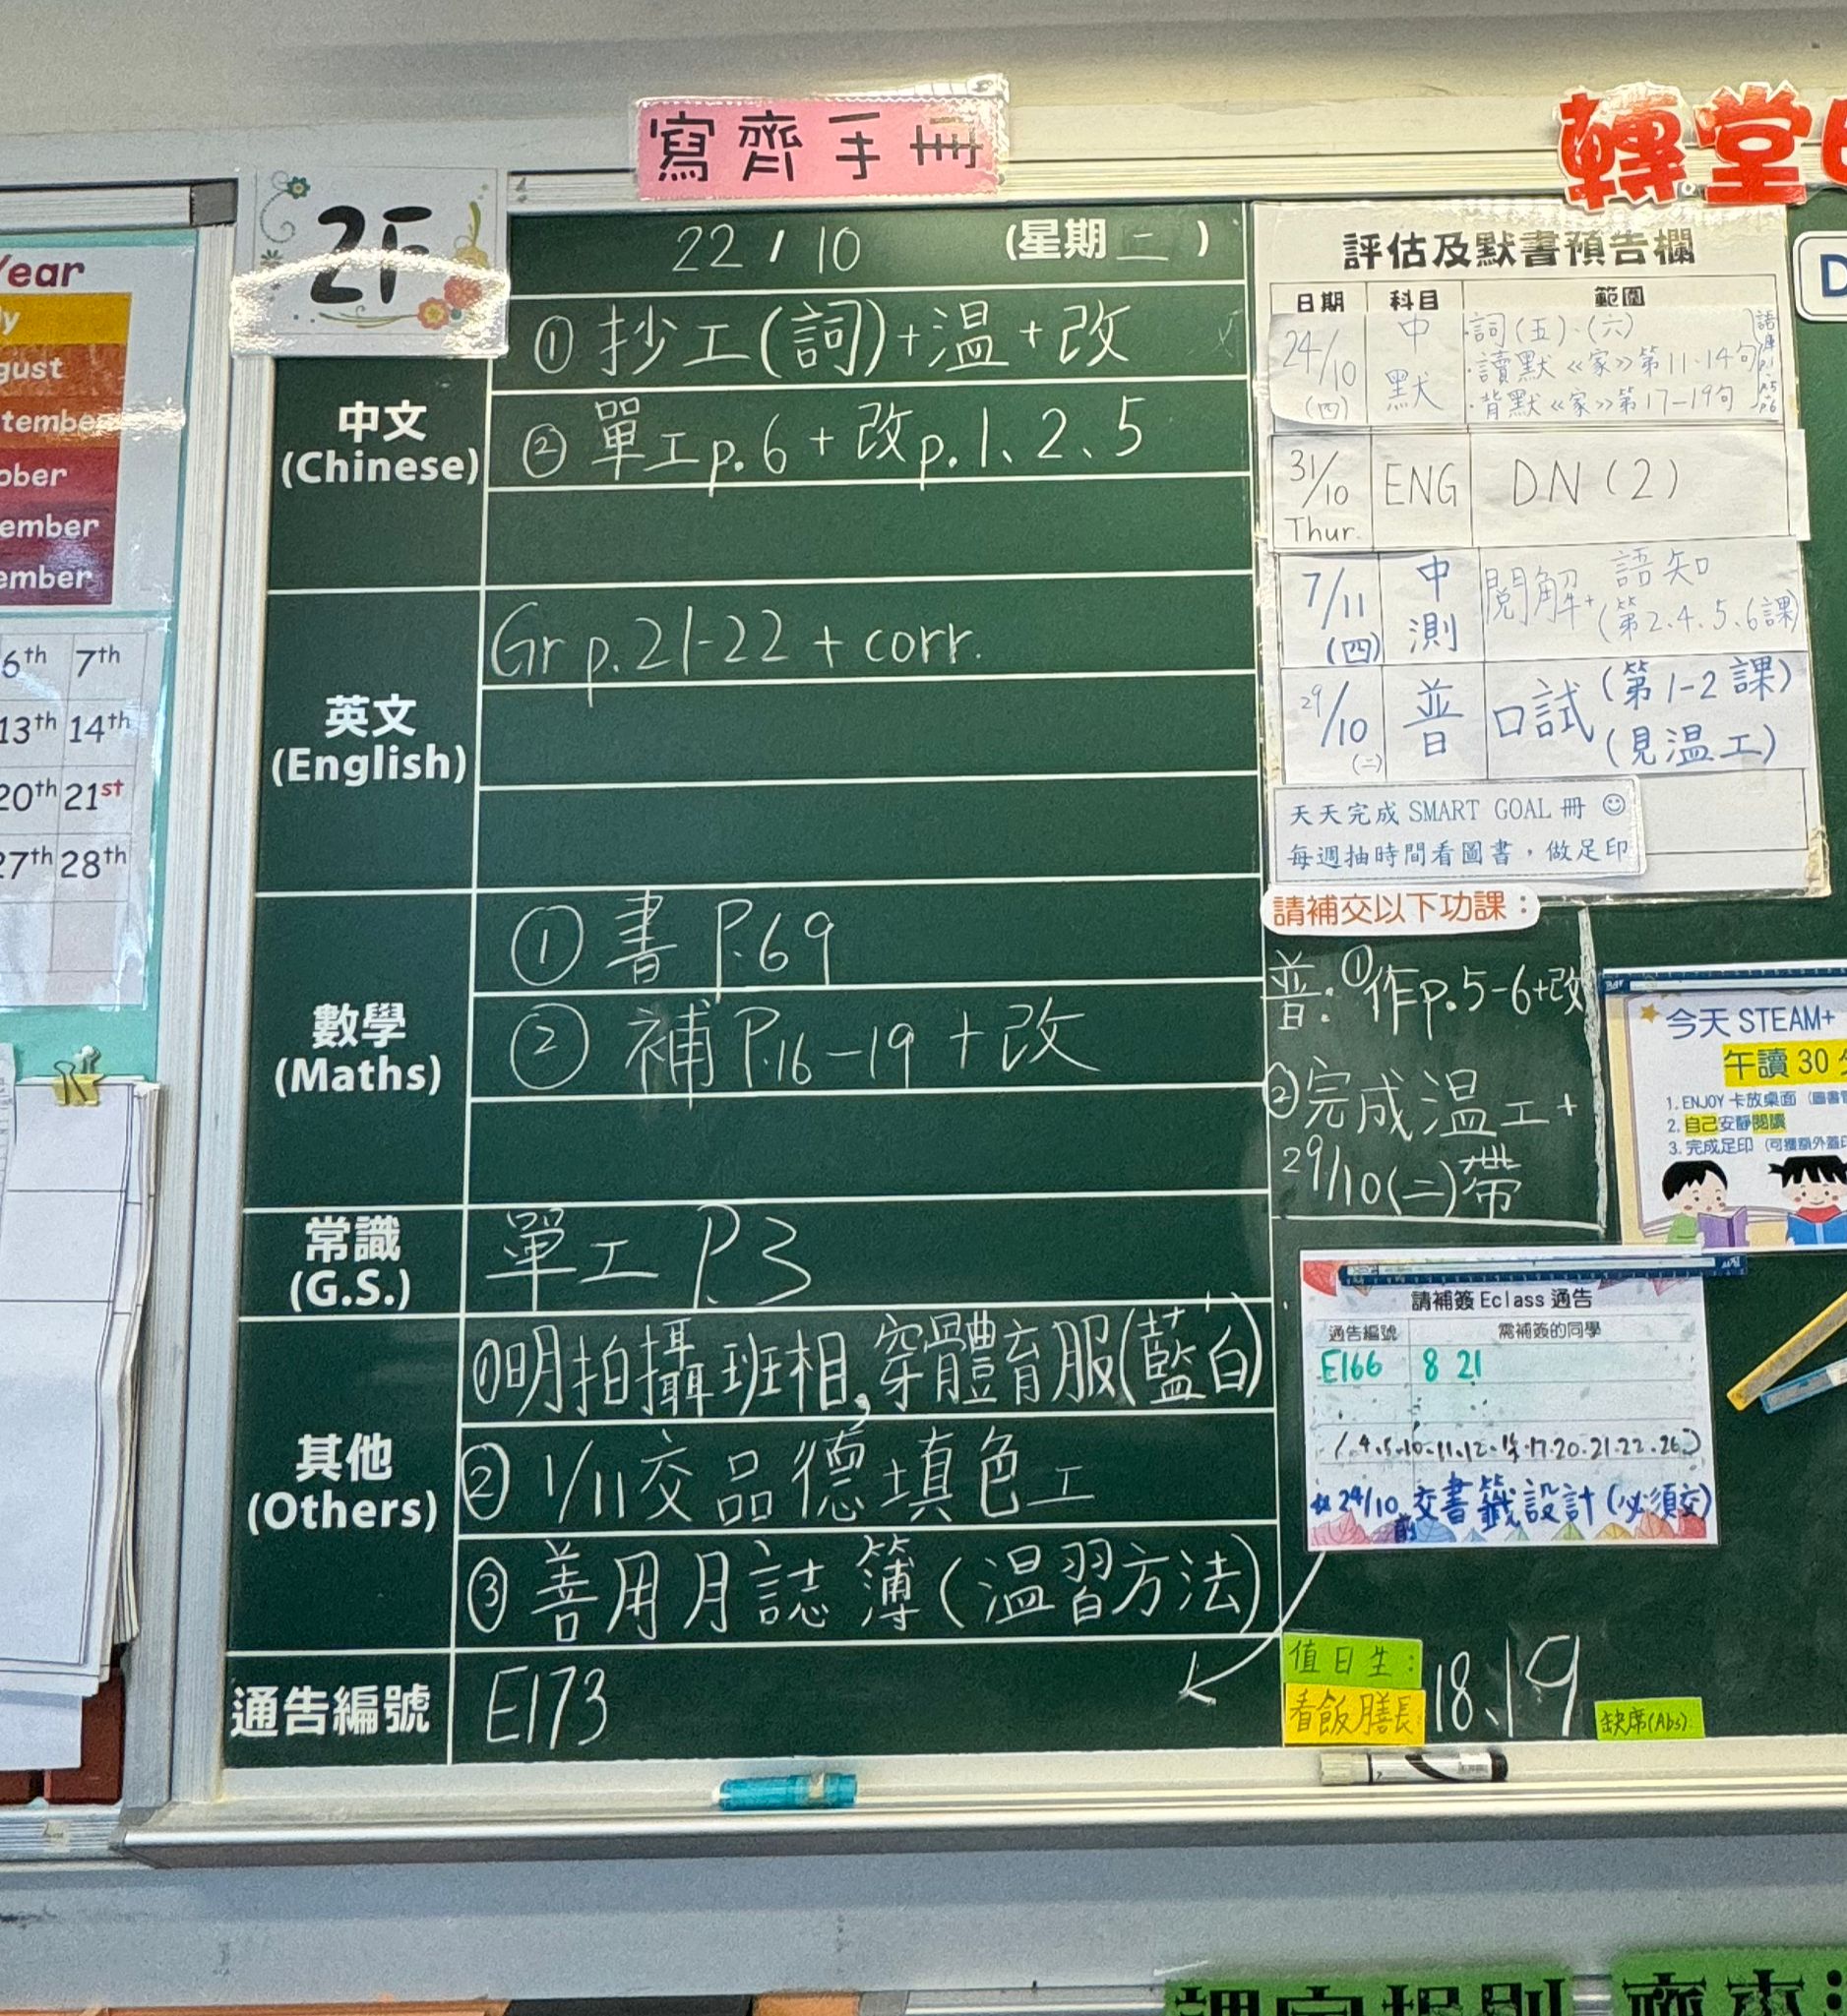 寫齊手冊
轉堂
2F
22/10 (星期二)
中文
(Chinese)
①抄工(詞)+溫+改
②單工p.6+改p.1、2、5
英文
(English)
Gr p.21-22 + corr.
數學
(Maths)
①書P.69
②補P.16-19+改
常識
(G.S.)
單工 P.3
其他
(Others)
①明拍攝班相,穿體育服(藍白)
②1/11交品德填色工
③善用月誌簿(溫習方法)
通告編號
E173
評估及默書預告欄
日期 科目 範圍
24/10 (四) 中默
·詞(五)、(六)
·讀默《家》第11-14句
·背默《家》第17-19句
31/10 Thur. ENG DN(2)
7/11 (四) 中測 閱解+語知 (第2、4、5、6課)
29/10 (二) 普 口試 (第1-2課) (見溫工)
天天完成 SMART GOAL 冊
每週抽時間看圖書，做足印
請補交以下功課：
普:①作p.5-6+改
②完成溫工+
29/10(二)帶
今天 STEAM+
午讀 30
1. ENJOY 卡放桌面
2. 自己安靜閱讀
3. 完成足印
請補簽 Eclass 通告
通告編號 需補簽的同學
E166 8 21
24/10前交書籤設計(必須交)
值日生:
看飯膳長
18、19
缺席(Abs):
Year
6th 7th
13th 14th
20th 21st
27th 28th